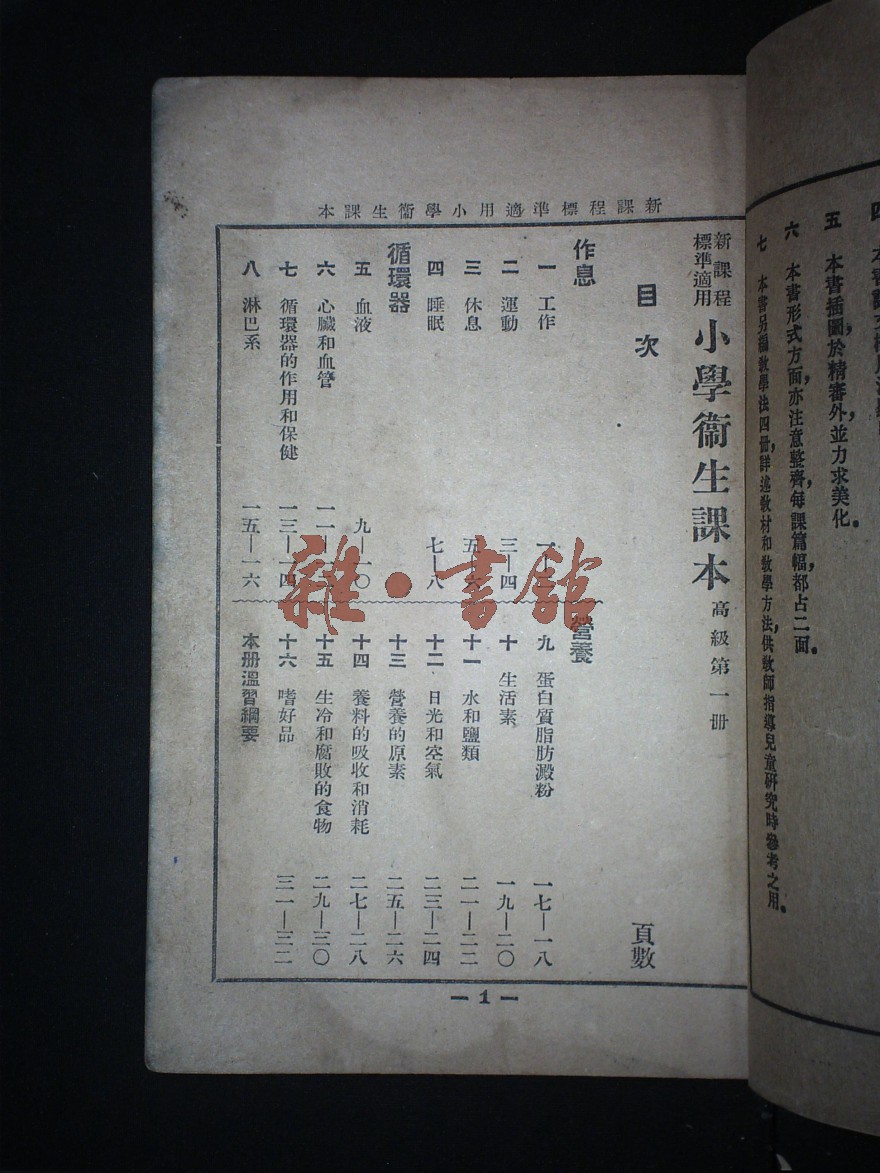 五　本書插圖於精審外，並力求美化。
六　本書形式方面，亦注意整齊，每課篇幅，都占二面。
七　本書另編教學法四冊，詳述教材和教學方法，供教師指導兒童研究時參考之用。
新課程標準適用小學衞生課本
新課程標準適用 小學衞生課本 高級第一冊
目次 頁數
作息
一 工作
二 運動 三—四
三 休息 五—六
四 睡眠 七—八
循環器
五 血液 九—一〇
六 心臟和血管
七 循環器的作用和保健 一三—一四
八 淋巴系 一五—一六
營養
九 蛋白質脂肪澱粉 一七—一八
十 生活素 一九—二〇
十一 水和鹽類 二一—二二
十二 日光和空氣 二三—二四
十三 營養的原素 二五—二六
十四 養料的吸收和消耗 二七—二八
十五 生冷和腐敗的食物 二九—三〇
十六 嗜好品 三一—三二
本冊溫習綱要
— 1 —
雜·書館